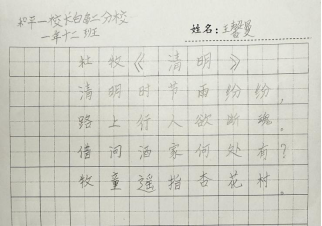 和平一校长白岛二分校
一年十二班
姓名：王馨曼
杜牧《清明》
清明时节雨纷纷，
路上行人欲断魂。
借问酒家何处有？
牧童遥指杏花村。